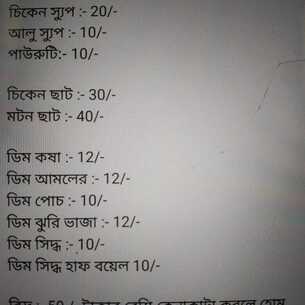 চিকেন স্যুপ :- 20/-
আলু স্যুপ :- 10/-
পাউরুটি:- 10/-
চিকেন ছাট :- 30/-
মটন ছাট :- 40/-
ডিম কষা :- 12/-
ডিম আমলের :- 12/-
ডিম পোচ :- 10/-
ডিম ঝুরি ভাজা :- 12/-
ডিম সিদ্ধ :- 10/-
ডিম সিদ্ধ হাফ বয়েল 10/-